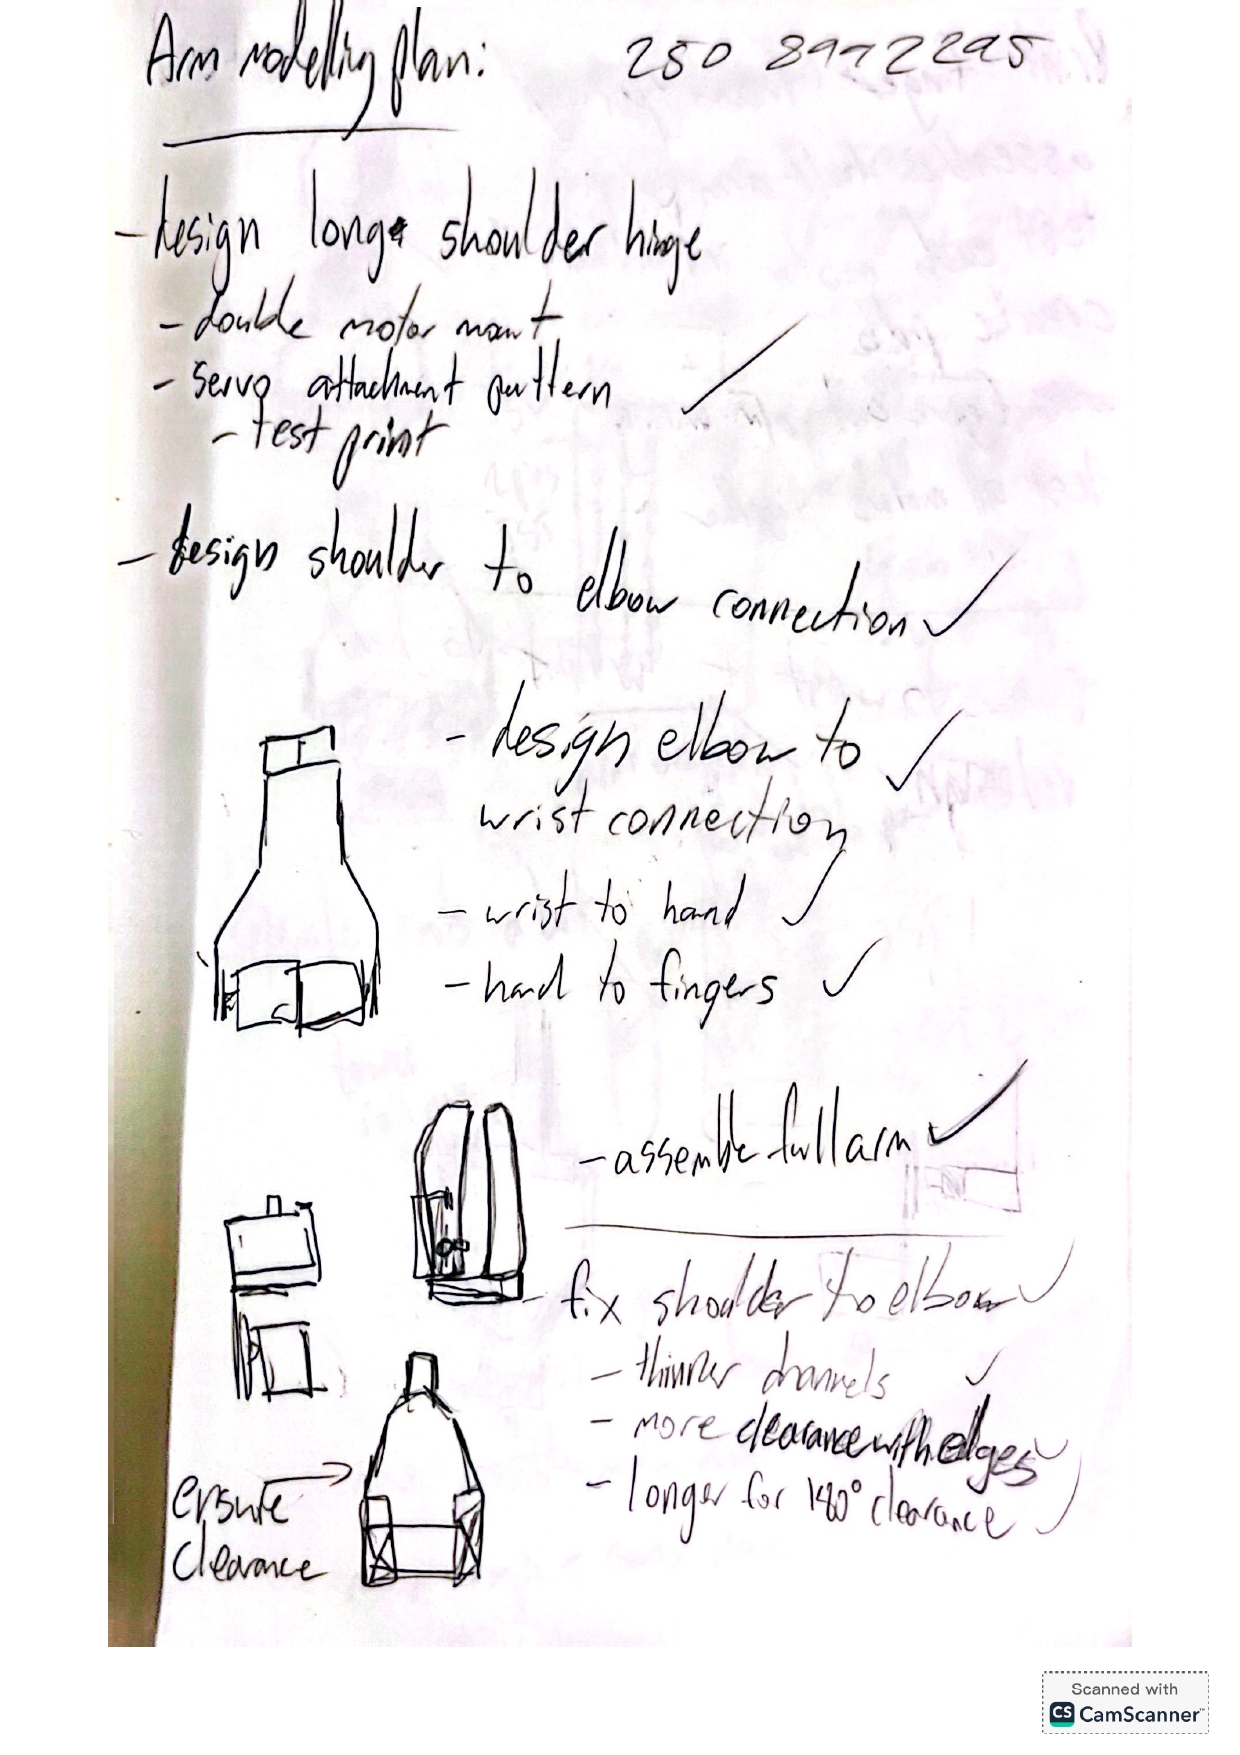 Arm modelling plan: 250 8992295
- design long shoulder hinge
- double motor mount
- servo attachment pattern ✓
- test print
- design shoulder to elbow connection ✓
- design elbow to ✓
wrist connection
- wrist to hand ✓
- hand to fingers ✓
- assemble full arm ✓
- fix shoulder to elbow ✓
- thinner channels ✓
- more clearance with edges ✓
- longer for 180° clearance ✓
ensure
clearance
Scanned with
CS CamScanner